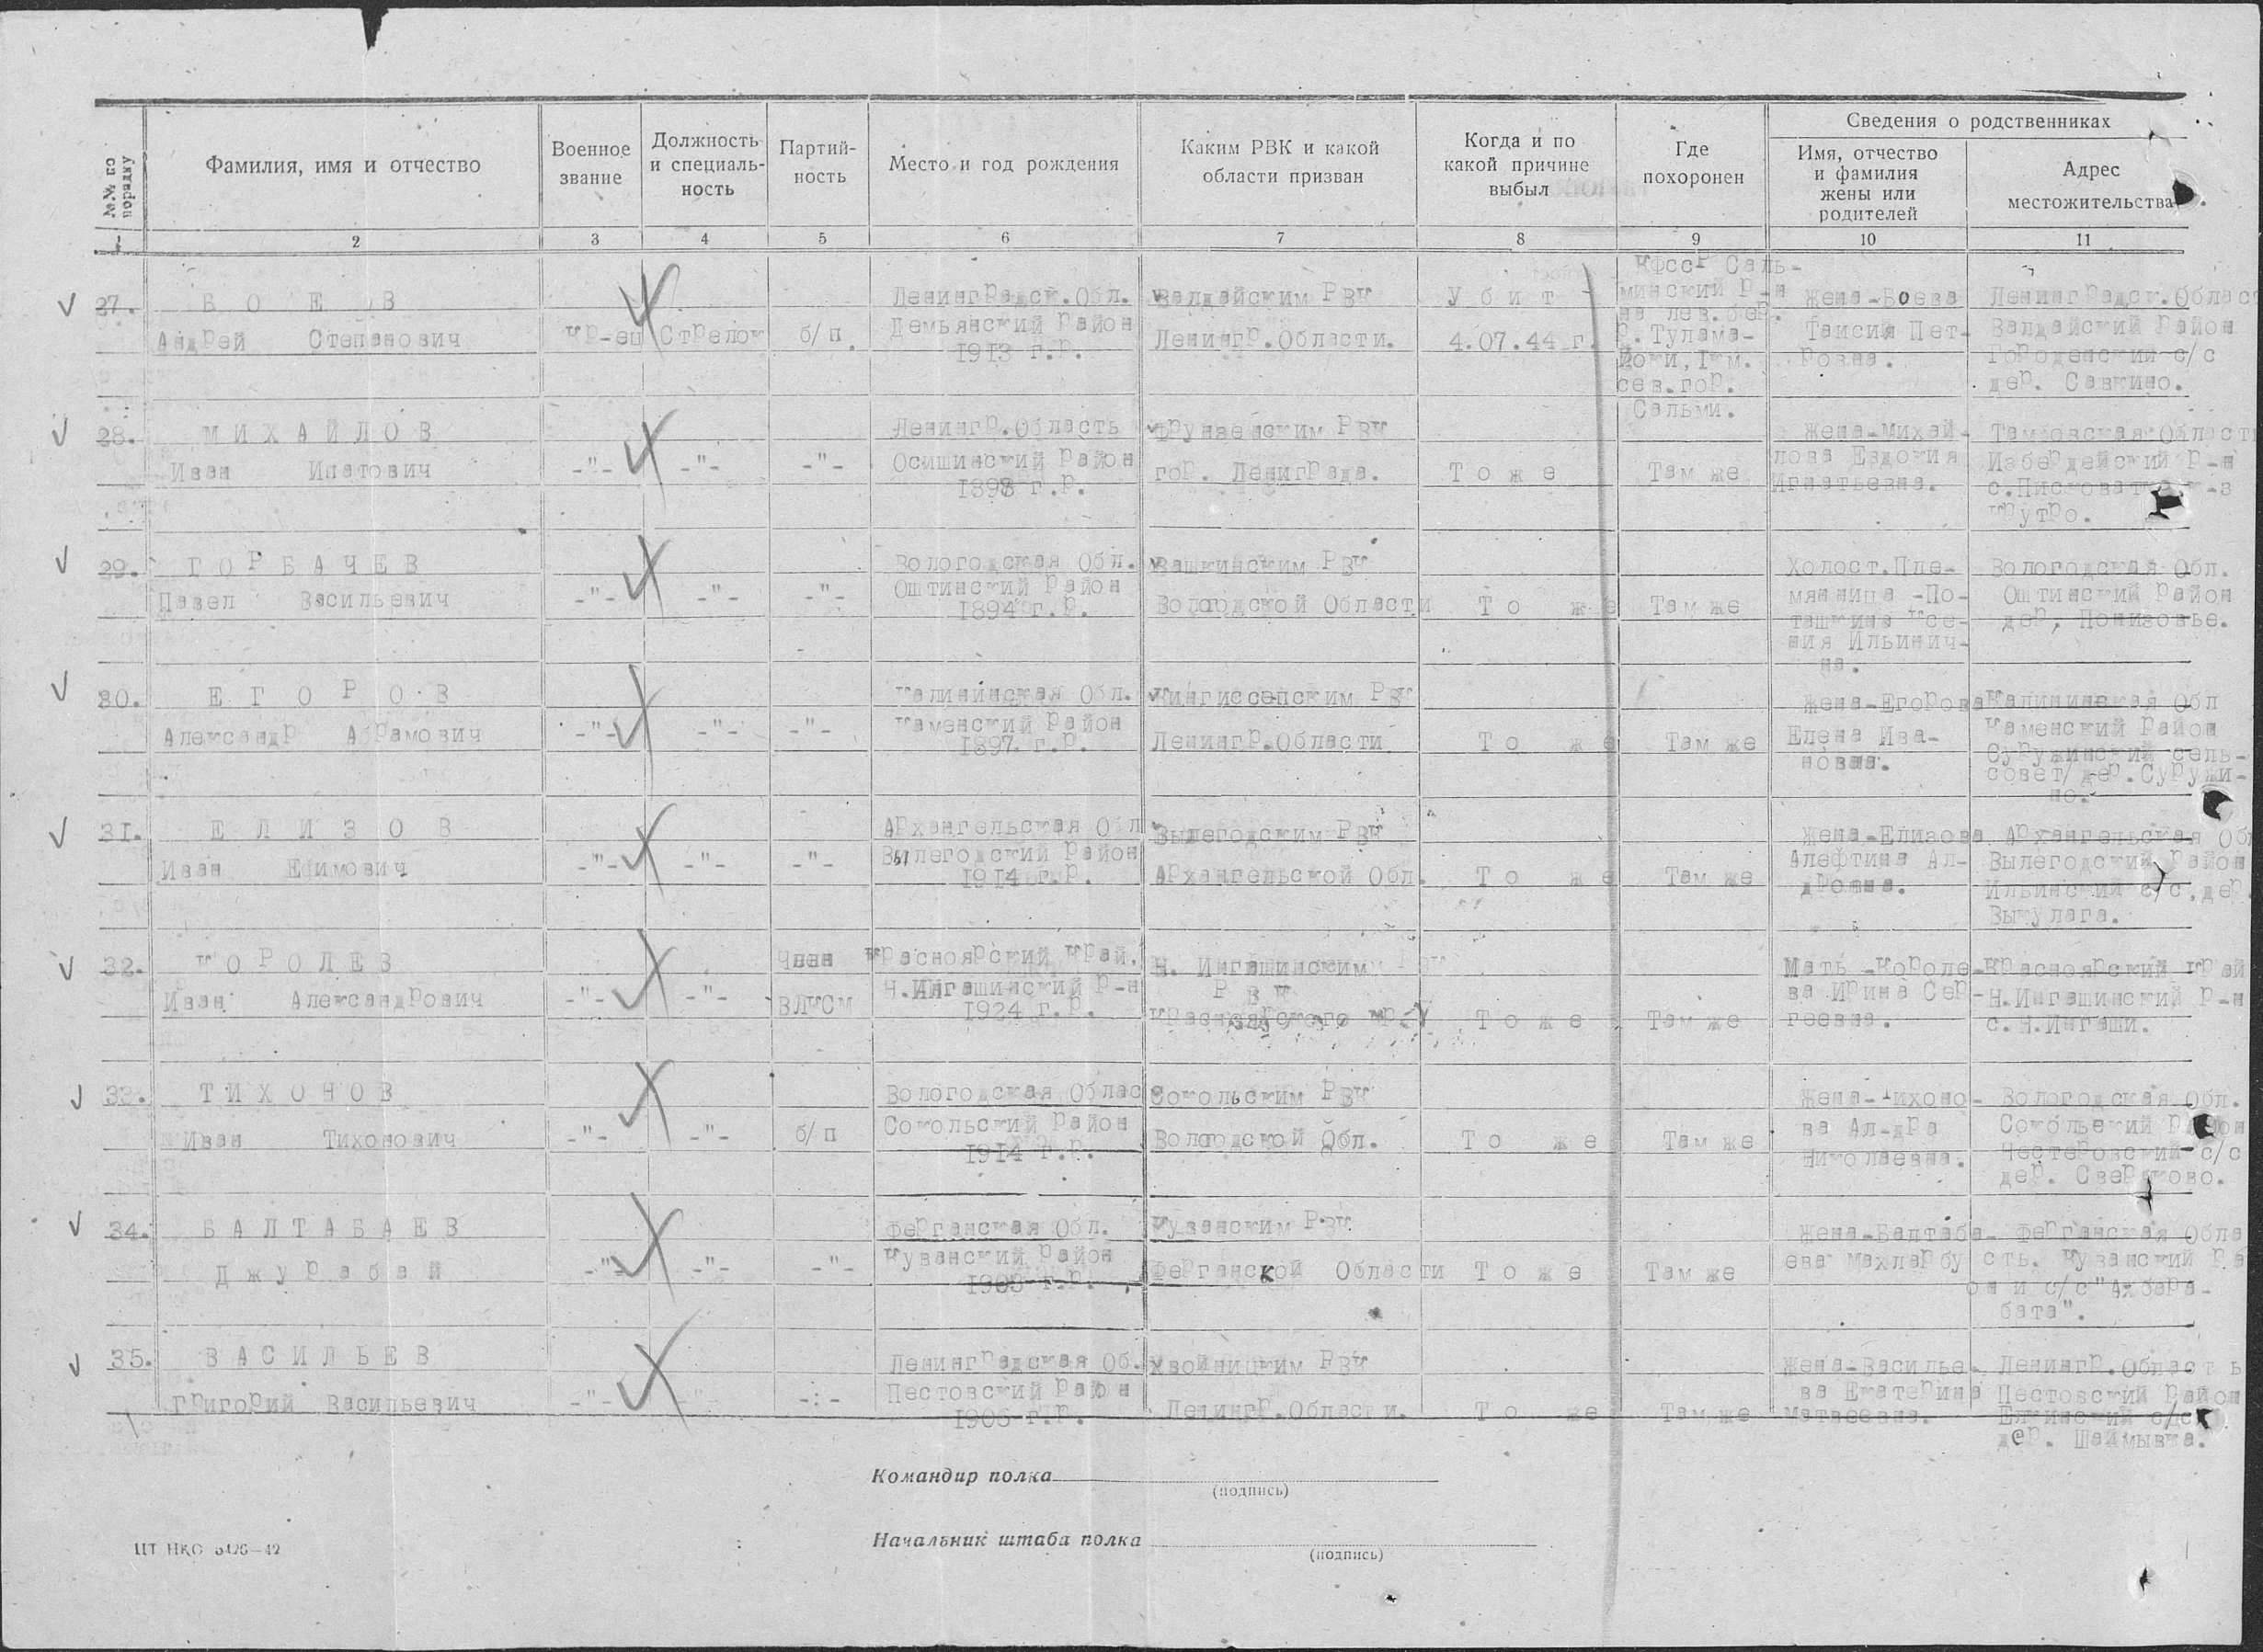 №№ по порядку
Фамилия, имя и отчество
Военное звание
Должность и специаль-ность
Партий-ность
Место и год рождения
Каким РВК и какой области призван
Когда и по какой причине выбыл
Где похоронен
Сведения о родственниках
Имя, отчество и фамилия жены или родителей
Адрес местожительства
1 2 3 4 5 6 7 8 9 10 11
27. БОЕВ
Андрей Степанович
кр-ец Стрелок б/п.
Ленинградск.Обл.
Демьянский район
1913 г.р.
Валдайским РВК
Ленингр.Области.
Убит
4.07.44 г.
КФССР Саль-
минский р-н
на лев.бер.
р.Тулама-
йоки, 1км.
сев.гор.
Сальми.
Жена-Боева
Таисия Пет-
ровна.
Ленинградск.Област
Валдайский район
Городенский с/с
дер. Савкино.
28. МИХАЙЛОВ
Иван Ипатович
-"- -"- -"-
Ленингр.Область
Осишинский район
1898 г.р.
Фрунзенским РВК
гор. Лениграда.
То же
Там же
Жена-Михай-
лова Евдокия
Игнатьевна.
Тамбовская Област
Избердейский р-н
с.Писковатка к-з
Крутро.
29. ГОРБАЧЕВ
Павел Васильевич
-"- -"- -"-
Вологодская Обл.
Оштинский район
1894 г.р.
Вашкинским РВК
Вологодской Области
То же
Там же
Холост.Пле-
мянница -По-
ташкина Ксе-
ния Ильинич-
на.
Вологодская Обл.
Оштинский район
дер, Понизовье.
30. ЕГОРОВ
Александр Абрамович
-"- -"- -"-
Калининская Обл.
Каменский район
1897 г.р.
Кингиссепским РВК
Ленингр.Области
То же
Там же
Жена-Егорова
Елена Ива-
новна.
Калининская Обл
Каменский район
Суружинский сель-
совет/дер.Суружи-
но.
31. ЕЛИЗОВ
Иван Ефимович
-"- -"- -"-
Архангельская Обл
Вылегодский район
1914 г.р.
Вылегодским РВК
Архангельской Обл.
То же
Там же
Жена-Елизова
Алефтина Ал-
дровна.
Архангельская Об
Вылегодский район
Ильинский с/с,дер.
Выкулага.
32. КОРОЛЕВ
Иван Александрович
-"- -"-
Член
ВЛКСМ
Красноярский край.
Н.Ингашинский р-н
1924 г.р.
Н. Ингашинским
РВК
Красноярского кр.
То же
Там же
Мать -Короле-
ва Ирина Сер-
геевна.
Красноярский край
Н.Ингашинский р-н
с.Н.Ингаши.
33. ТИХОНОВ
Иван Тихонович
-"- -"- б/п
Вологодская Облас
Сокольский район
1914 г.р.
Сокольским РВК
Вологодской Обл.
То же
Там же
Жена-Тихоно-
ва Ал-дра
Николаевна.
Вологодская Обл.
Сокольский район
Нестеровский с/с
дер. Сверчково.
34. БАЛТАБАЕВ
Джурабай
-"- -"- -"-
Ферганская Обл.
Куванский район
г.р.
Куванским РВК
Ферганской Области
То же
Там же
Жена-Балтаба-
ева Махларбу
Ферганская Обла
сть. Куванский ра
он и с/с"Акбара-
бата".
35. ВАСИЛЬЕВ
Григорий Васильевич
-"- -"- -:-
Ленинградская Об.
Пестовский район
1906 г.р.
Хвойницким РВК
Ленингр.Области.
То же
Там же
Жена-Василье-
ва Екатерина
Матвеевна.
Ленингр.Область
Пестовский район
дер. Шаймывка.
Командир полка
(подпись)
Начальник штаба полка
(подпись)
ЦТ НКО